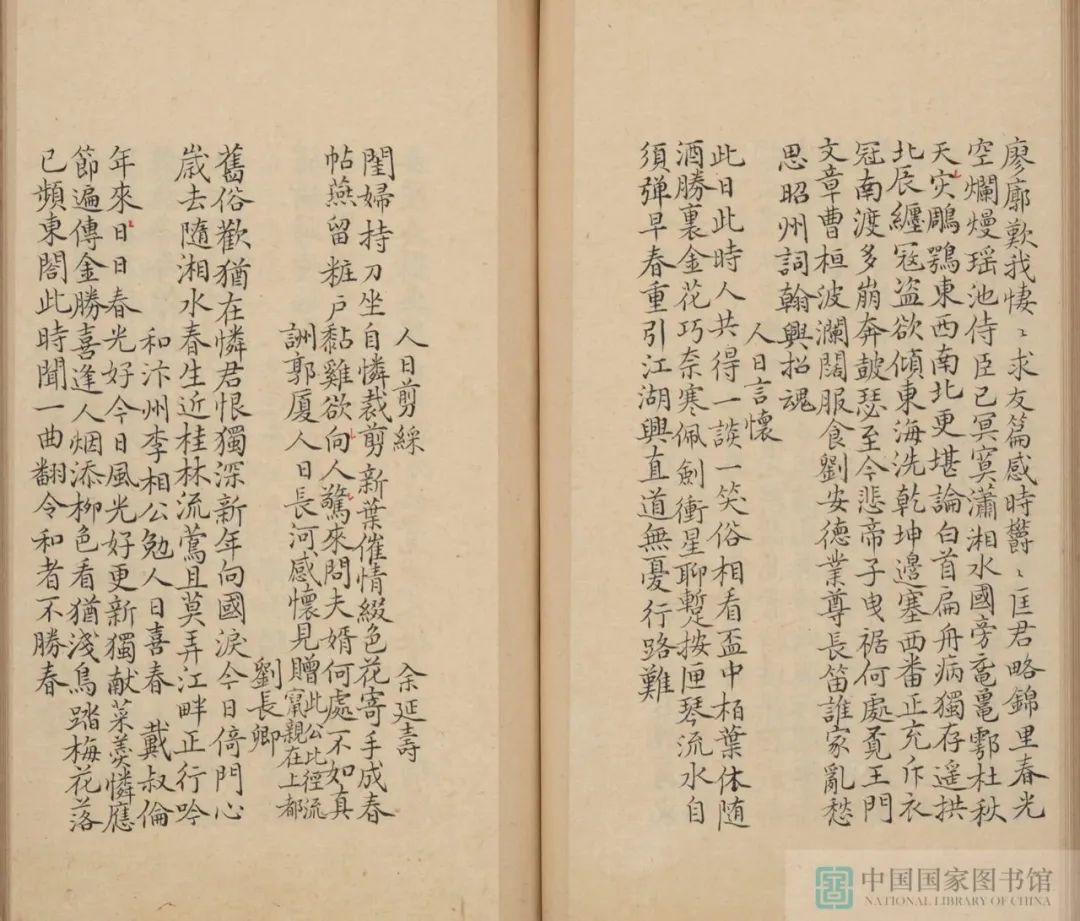 廖廓歎我悽〻求友篇感時欝〻匡君略錦里春光
空爛熳瑶池侍臣已冥寞瀟湘水國旁黿鼉鄠杜秋
天灾鵰鶚東西南北更堪論白首扁舟病獨存遥拱
北辰纏冦盗欲傾東海洗乾坤邊塞西番正充斥衣
冠南渡多崩奔皷瑟至今悲帝子曳裾何處覔王門
文章曹桓波瀾闊服食劉安德業尊長笛誰家亂愁
思昭州詞翰興招魂
人日言懷
此日此時人共得一談一笑俗相看盃中栢葉休随
酒勝裏金花巧奈寒佩劍衝星聊蹔按匣琴流水自
須弹早春重引江湖興直道無憂行路難
人日剪綵 余延壽
閨婦持刀坐自憐裁剪新葉催情綴色花寄手成春
帖燕留粧戶黏雞欲向人驚來問夫婿何處不如真
詶郭厦人日長河感懷見贈 此公比徑流
竄親在上都
劉長卿
舊俗歡猶在憐君恨獨深新年向國淚今日倚門心
歲去隨湘水春生近桂林流鶯且莫弄江畔正行吟
和汴州李相公勉人日喜春 戴叔倫
年來日日春光好今日風光好更新獨献菜羹憐應
節遍傳金勝喜逢人烟添柳色看猶淺鳥踏梅花落
已頻東閤此時聞一曲翻令和者不勝春
中国国家图书馆
NATIONAL LIBRARY OF CHINA